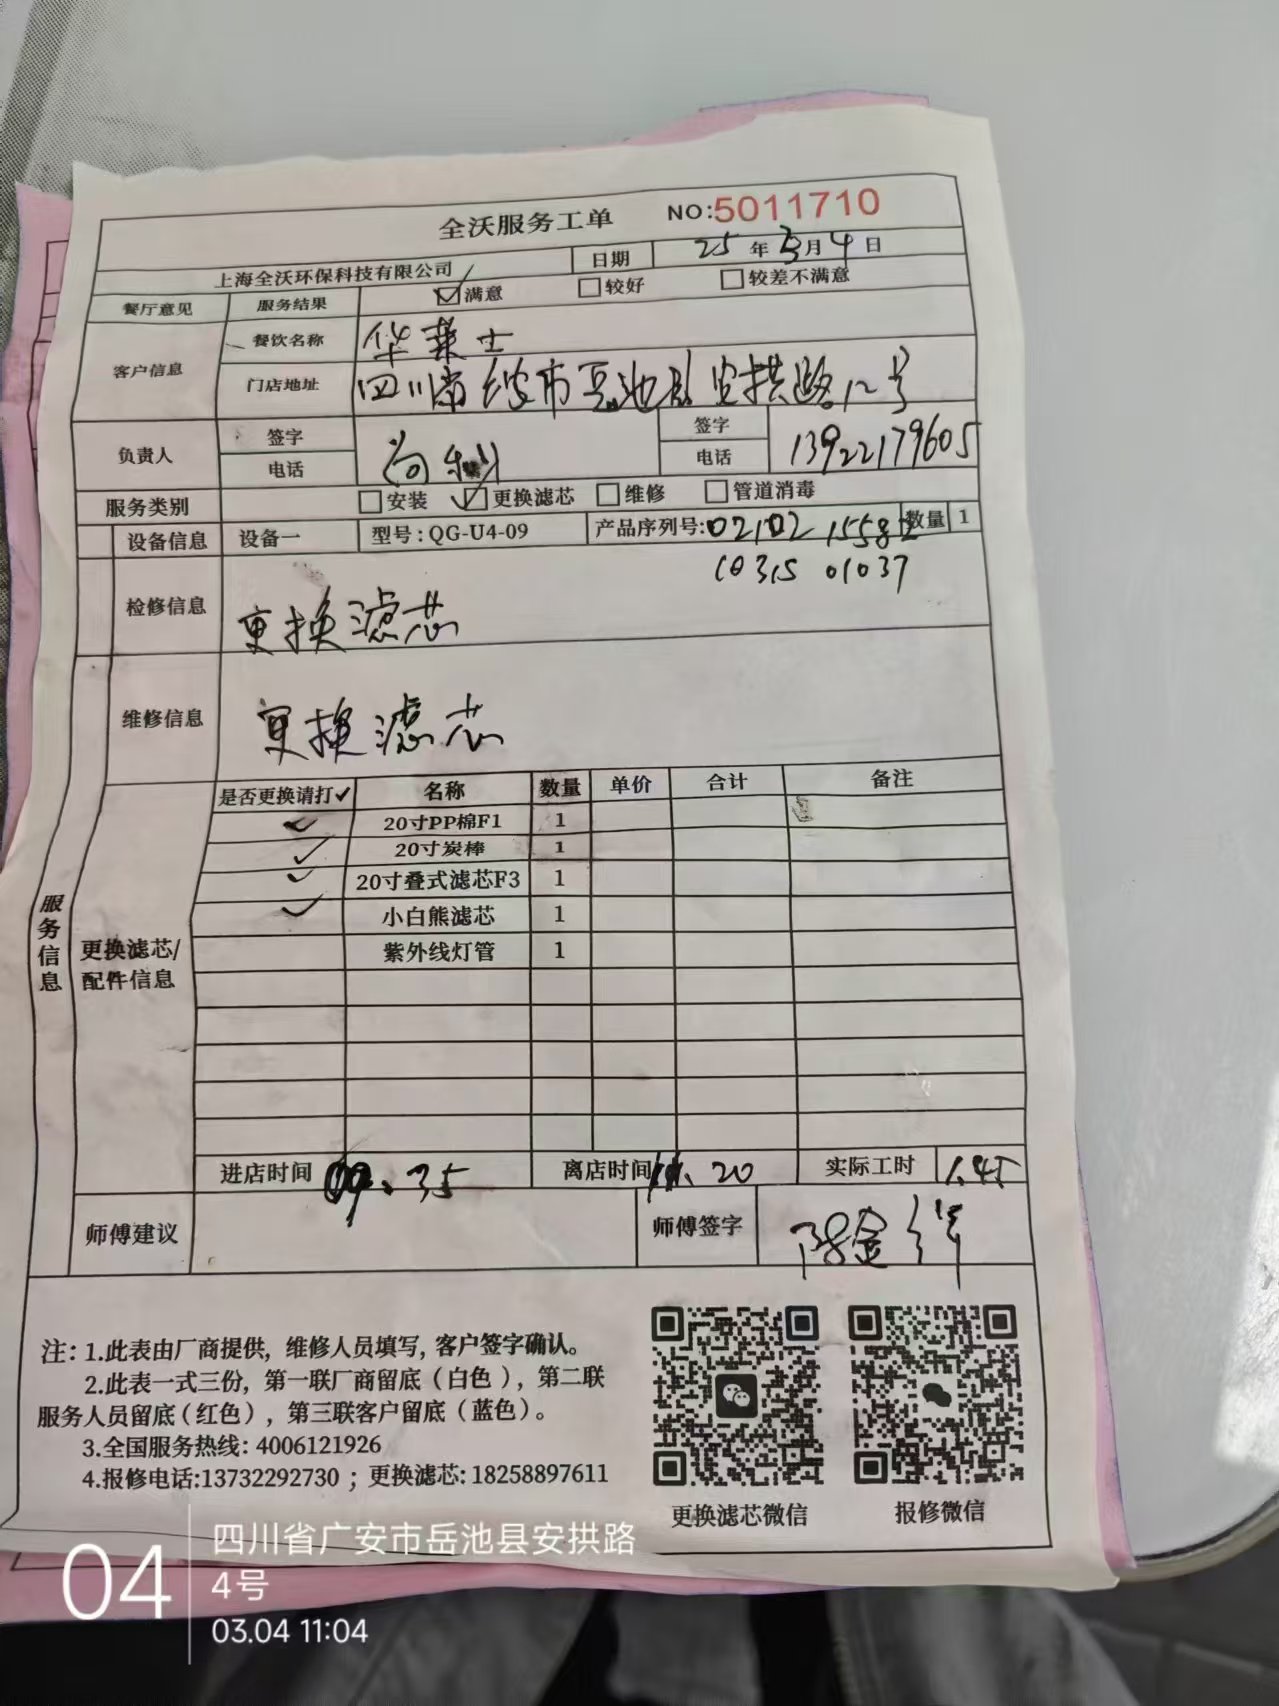 全沃服务工单 NO:5011710
上海全沃环保科技有限公司 日期 25年3月4日
餐厅意见 服务结果 满意 较好 较差不满意
客户信息 餐饮名称 华莱士
门店地址 四川省 市岳池县安拱路12号
负责人 签字 签字
电话 电话 13922179605
服务类别 安装 更换滤芯 维修 管道消毒
设备信息 设备一 型号:QG-U4-09 产品序列号: 数量 1
10315 01037
检修信息 更换滤芯
维修信息 更换滤芯
服务信息
更换滤芯/
配件信息
是否更换请打✓ 名称 数量 单价 合计 备注
✓ 20寸PP棉F1 1
✓ 20寸炭棒 1
✓ 20寸叠式滤芯F3 1
✓ 小白熊滤芯 1
紫外线灯管 1
进店时间 09.35 离店时间 11.20 实际工时 1.45
师傅建议 师傅签字
注：1.此表由厂商提供，维修人员填写，客户签字确认。
2.此表一式三份，第一联厂商留底（白色），第二联
服务人员留底（红色），第三联客户留底（蓝色）。
3.全国服务热线：4006121926
4.报修电话:13732292730；更换滤芯：18258897611
更换滤芯微信 报修微信
04
四川省广安市岳池县安拱路
4号
03.04 11:04